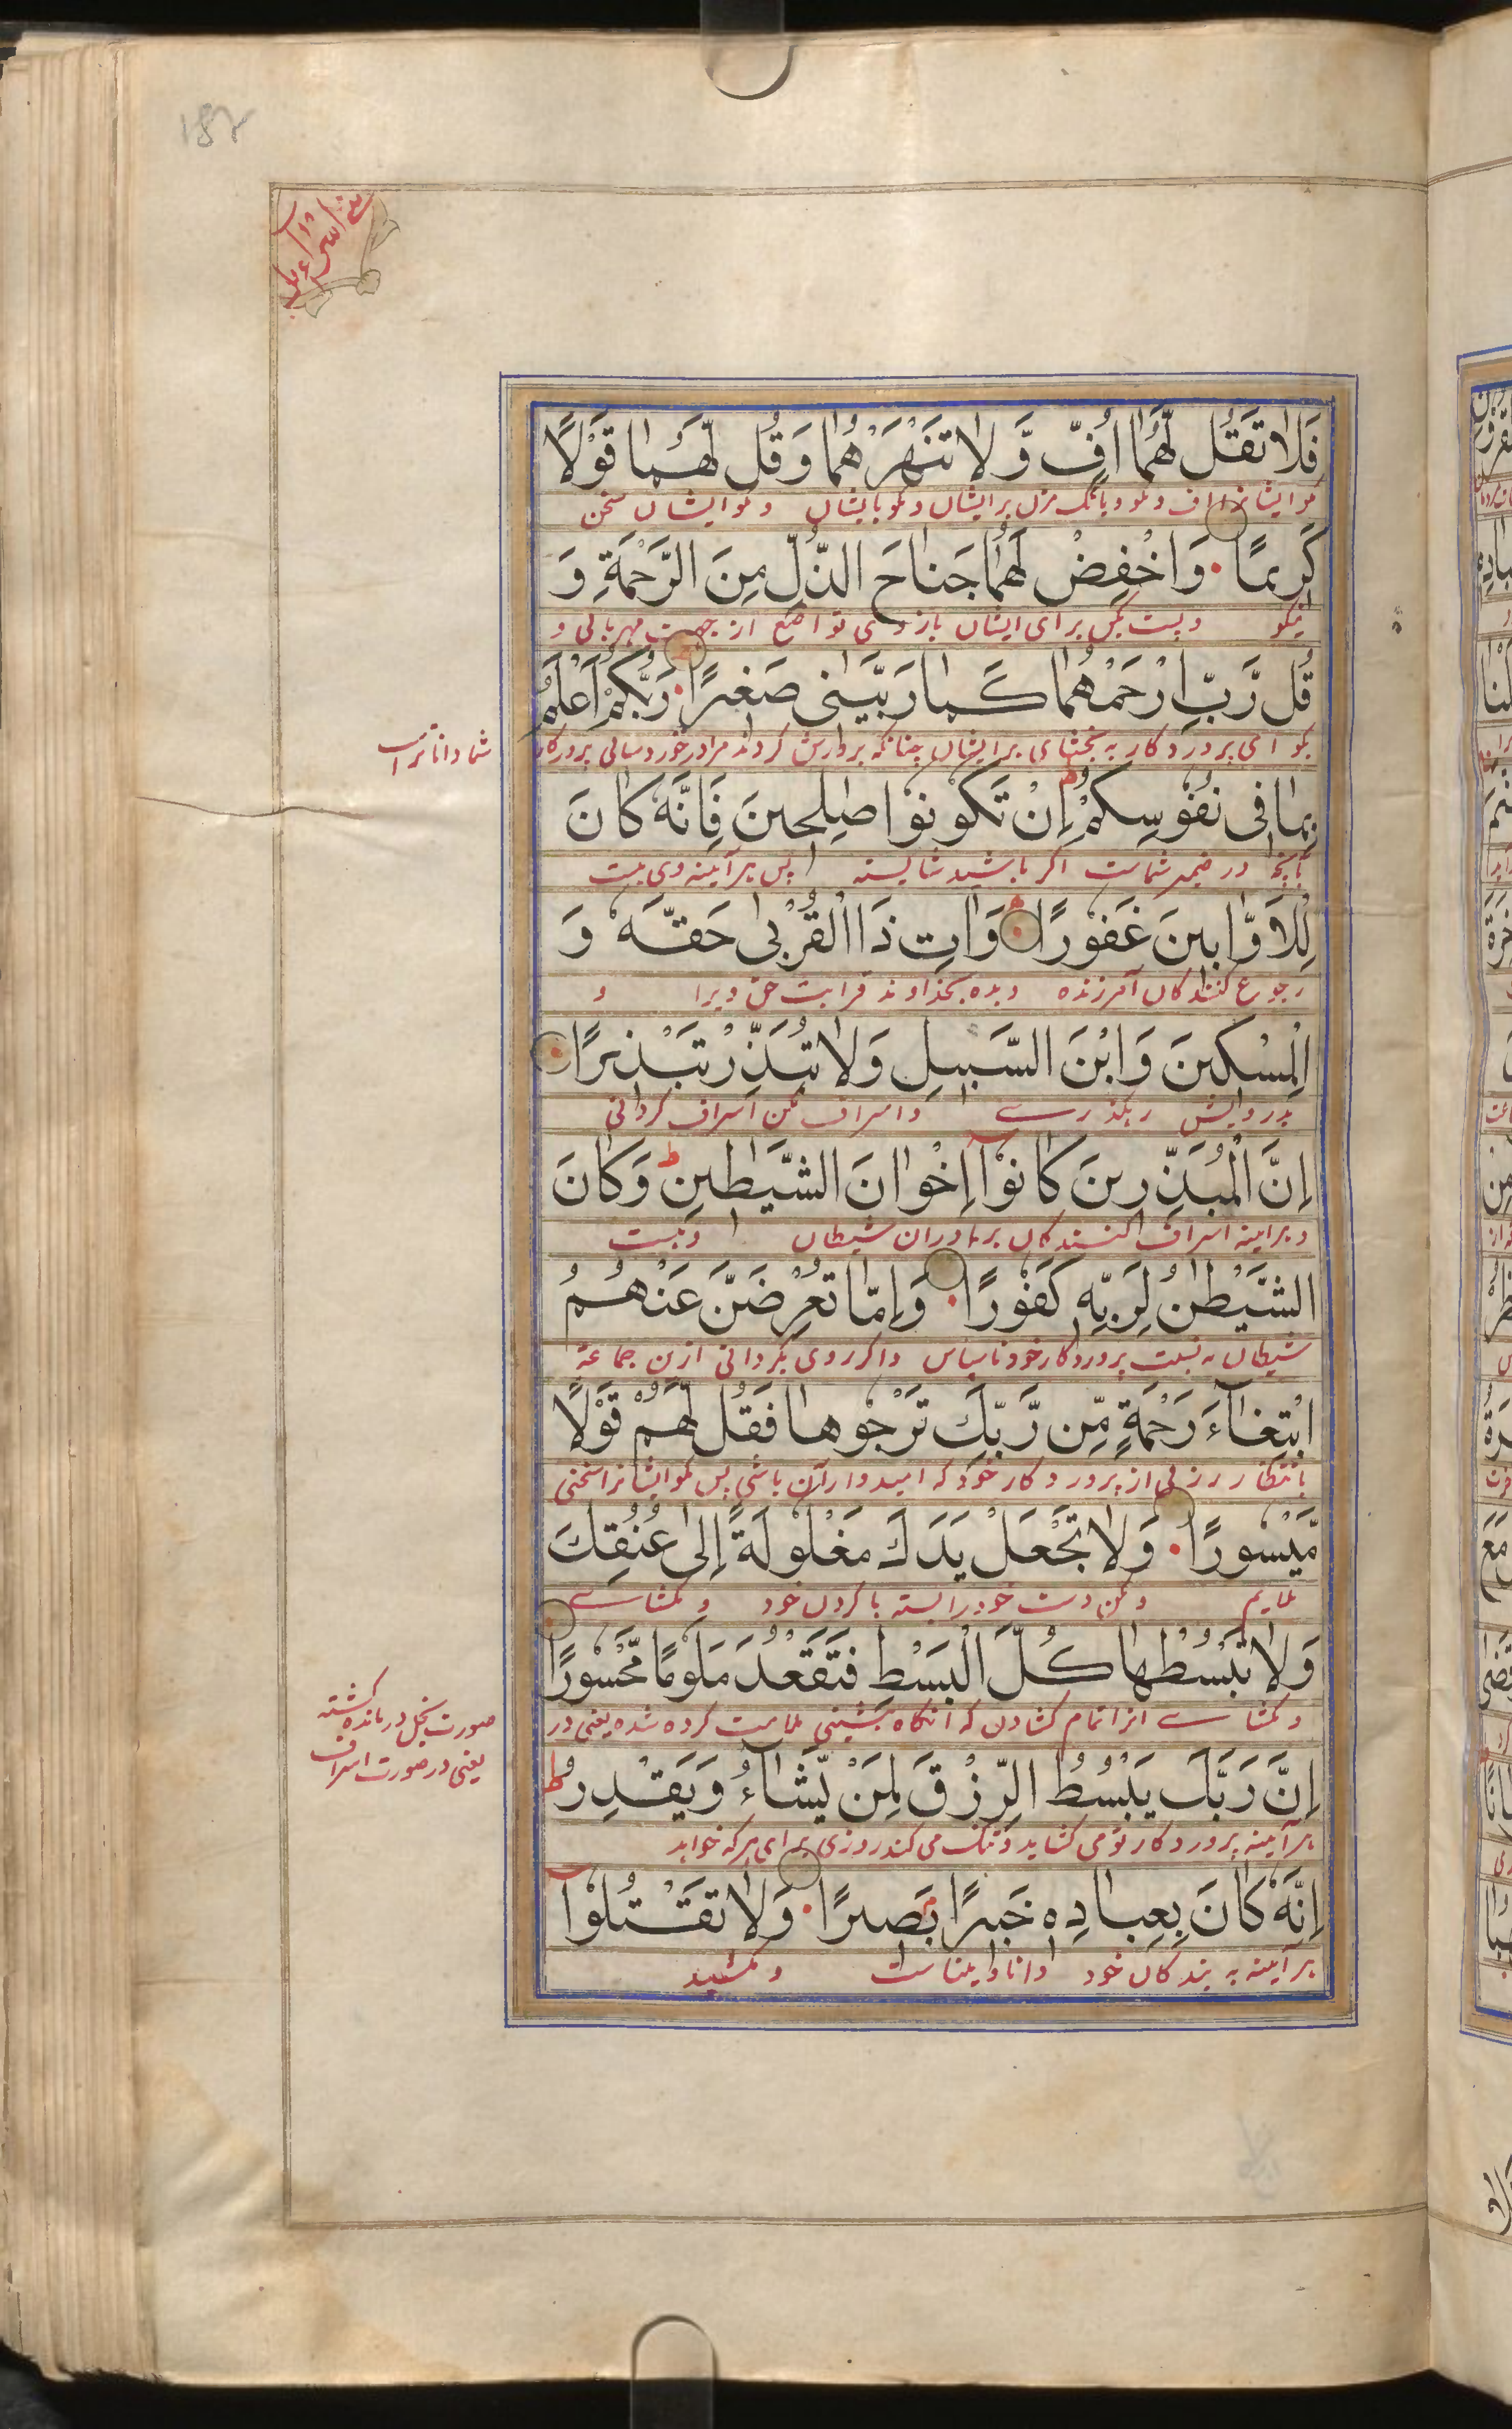 182
بنی اسرائیل
فَلَا تَقُل لَّهُمَا أُفٍّ وَّلَا تَنْهَرْهُمَا وَقُل لَّهُمَا قَوْلًا
مگو ایشانرا اف و بانگ مزن برایشان و بگو بایشان سخن
كَرِيمًا وَاخْفِضْ لَهُمَا جَنَاحَ الذُّلِّ مِنَ الرَّحْمَةِ وَ
نیکو و پست کن برای ایشان بازوی تواضع از جهت مهربانی و
قُل رَّبِّ ارْحَمْهُمَا كَمَا رَبَّيَانِي صَغِيرًا رَبُّكُمْ أَعْلَمُ
بگو ای پروردگار به بخشای برایشان چنانکه پرورش کردند مرا در خوردسالی پروردگار
شما داناتر است
بِمَا فِي نُفُوسِكُمْ ط إِنْ تَكُونُوا صٰلِحِينَ فَإِنَّهُ كَانَ
بآنچه در ضمیر شماست اگر باشید شایسته پس هرآینه وی هست
لِلْأَوَّابِينَ غَفُورًا وَاٰتِ ذَا الْقُرْبٰى حَقَّهُ وَ
رجوع کنندگان آمرزنده و بده بخداوند قرابت حق ویرا و
الْمِسْكِينَ وَابْنَ السَّبِيلِ وَلَا تُبَذِّرْ تَبْذِيرًا
بدرویش رهگذری و اسراف مکن اسراف کردنی
إِنَّ الْمُبَذِّرِينَ كَانُوٓا إِخْوَانَ الشَّيٰطِينِ ط وَكَانَ
هرآینه اسراف کنندگان برادران شیطان و هست
الشَّيْطٰنُ لِرَبِّهِ كَفُورًا وَإِمَّا تُعْرِضَنَّ عَنْهُمُ
شیطان به نسبت پروردگار خود ناسپاس و اگر روی بگردانی ازین جماعة
ابْتِغَآءَ رَحْمَةٍ مِّن رَّبِّكَ تَرْجُوهَا فَقُل لَّهُمْ قَوْلًا
بانتظار رزقی از پروردگار خود که امیدوار آن باشی پس بگو ایشانرا سخنی
مَّيْسُورًا وَلَا تَجْعَلْ يَدَكَ مَغْلُولَةً إِلٰى عُنُقِكَ
ملایم و مکن دست خود را بسته با گردن خود و مگشای
وَلَا تَبْسُطْهَا كُلَّ الْبَسْطِ فَتَقْعُدَ مَلُومًا مَّحْسُورًا
و مگشای آنرا تمام گشادن که آنگاه بنشینی ملامت کرده شده یعنی در
صورت بخل درمانده گشته
یعنی در صورت اسراف
إِنَّ رَبَّكَ يَبْسُطُ الرِّزْقَ لِمَنْ يَّشَآءُ وَيَقْدِرُ ط
هرآینه پروردگار تو می گشاید و تنگ می کند روزی برای هرکه خواهد
إِنَّهُ كَانَ بِعِبَادِهِ خَبِيرًا بَصِيرًا وَلَا تَقْتُلُوٓا
هرآینه به بندگان خود دانا و بیناست و مکشید